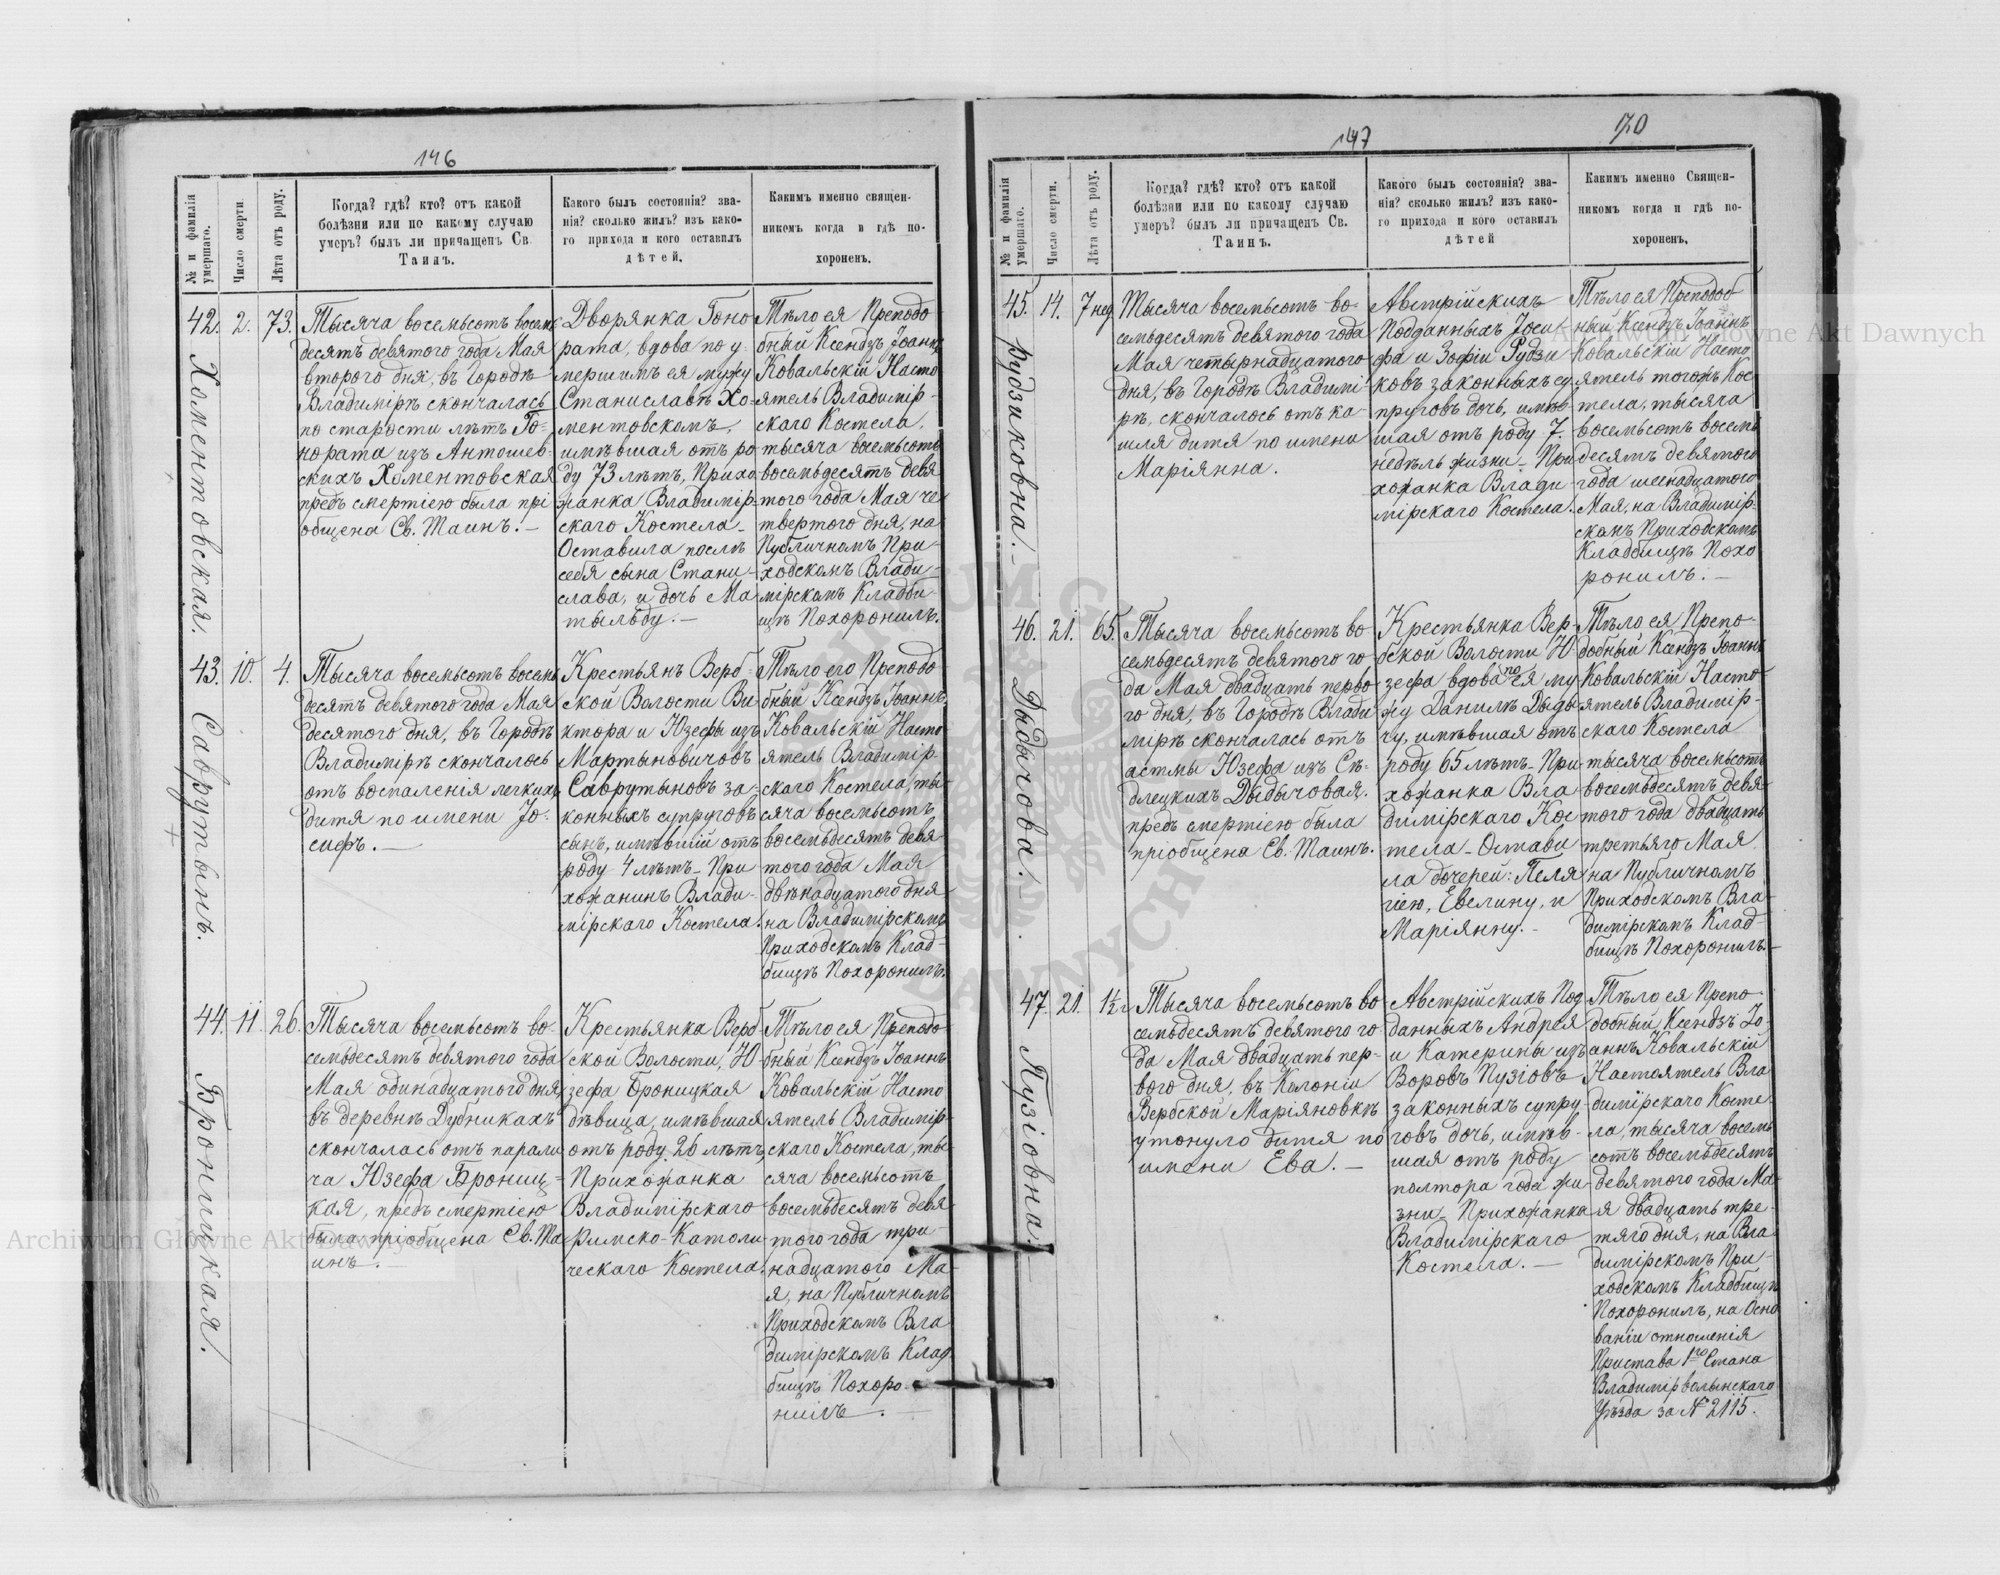 146
№ и фамилія умершаго.
Число смерти.
Лѣта отъ роду.
Когда? гдѣ? кто? отъ какой
болѣзни или по какому случаю
умеръ? былъ ли причащенъ Св.
Таинъ.
Какого былъ состоянія? зва-
нія? сколько жилъ? изъ како-
го прихода и кого оставилъ
дѣтей.
Какимъ именно священ-
никомъ когда и гдѣ по-
хороненъ.
42.
Хоментовская.
2.
73.
Тысяча восемьсотъ восемь
десятъ девятого года Мая
второго дня, въ Городѣ
Владимірѣ скончалась
по старости лѣтъ Го-
нората изъ Антошев-
скихъ Хоментовская
предъ смертію была прі
общена Св. Таинъ.—
Дворянка Гоно
рата, вдова по у-
мершимъ ея мужу
Станиславѣ Хо-
ментовскомъ,
имѣвшая отъ ро
ду 73 лѣтъ, Прихо
жанка Владимір-
скаго Костела—
Оставила послѣ
себя сына Стани-
слава, и дочь Ма
тыльду.—
Тѣло ея Преподо
бный Ксендзъ Іоаннъ
Ковальскій Насто
ятель Владимір-
скаго Костела,
тысяча восемьсотъ
восемьдесятъ девя
того года Мая че
твертого дня, на
Публичномъ При-
ходскомъ Влади-
мірскомъ Кладби-
щѣ Похоронилъ.
43.
Саврутынъ.
10.
4.
Тысяча восемьсотъ восемь
десятъ девятого года Мая
десятого дня, въ Городѣ
Владимірѣ скончалось
отъ воспаленія легкихъ
дитя по имени Іо-
сифъ.—
Крестьянъ Верб-
ской Волости Ви
ктора и Юзефы изъ
Мартыновичовъ
Саврутыновъ за-
конныхъ супруговъ
сынъ, имѣвшій отъ
роду 4 лѣтъ— При
хожанинъ Влади-
мірскаго Костела.
Тѣло его Преподо
бный Ксендзъ Іоаннъ
Ковальскій Насто
ятель Владимір-
скаго Костела, ты-
сяча восемьсотъ
восемьдесятъ девя
того года Мая
двѣнадцатого дня
на Владимірскомъ
Приходскомъ Клад-
бищѣ Похоронилъ.
44.
Броницкая.
11.
26.
Тысяча восемьсотъ во-
семьдесятъ девятого года
Мая одинадцатого дня,
въ деревнѣ Дубникахъ
скончалась отъ парали
ча Юзефа Брониц-
кая, предъ смертію
была пріобщена Св. Та
инъ.—
Крестьянка Верб
ской Волости, Ю
зефа Броницкая
дѣвица, имѣвшая
отъ роду 26 лѣтъ,
Прихожанка
Владимірскаго
Римско-Католи
ческаго Костела.
Тѣло ея Преподо
бный Ксендзъ Іоаннъ
Ковальскій Насто
ятель Владимір-
скаго Костела, ты
сяча восемьсотъ
восемьдесятъ девя
того года три-
надцатого Ма-
я, на Публичномъ
Приходскомъ Вла
димірскомъ Клад
бищѣ Похоро-
нилъ.
147
70
№ и фамилія умершаго.
Число смерти.
Лѣта отъ роду.
Когда? гдѣ? кто? отъ какой
болѣзни или по какому случаю
умеръ? былъ ли причащенъ Св.
Таинъ.
Какого былъ состоянія? зва-
нія? сколько жилъ? изъ како-
го прихода и кого оставилъ
дѣтей
Какимъ именно Священ-
никомъ когда и гдѣ по-
хороненъ.
45.
Рудзиковна.
14.
7 нед
Тысяча восемьсотъ во-
семьдесятъ девятого года
Мая четырнадцатого
дня, въ Городѣ Владимі-
рѣ, скончалось отъ ка-
шля дитя по имени
Маріянна.
Австрійскихъ
Подданныхъ Іоси
фа и Зофіи Рудзи
ковъ законныхъ су
пруговъ дочь, имѣв
шая отъ роду 7.
недѣль жизни— При
хожанка Влади
мірскаго Костела.
Тѣло ея Преподоб
ный Ксендзъ Іоаннъ
Ковальскій Насто
ятель тогожъ Кос
тела, тысяча
восемьсотъ восемь
десятъ девятого
года шеснадцатого
Мая, на Владимір-
скомъ Приходскомъ
Кладбищѣ Похо
ронилъ.—
46.
Дыдычова.
21.
65.
Тысяча восемьсотъ во
семьдесятъ девятого го
да Мая двадцать перво
го дня, въ Городѣ Влади
мірѣ скончалась отъ
астмы Юзефа изъ Сѣ-
длецкихъ Дыдычовая.
предъ смертію была
пріобщена Св. Таинъ.
Крестьянка Вер-
бской Волости Ю
зефа вдова по ея му
жу Данилѣ Дыды
чу, имѣвшая отъ
роду 65 лѣтъ— При-
хожанка Вла
димірскаго Кос
тела— Остави
ла дочерей: Пеля
гію, Евелину, и
Маріянну.—
Тѣло ея Препо-
добный Ксендзъ Іоаннъ
Ковальскій Насто
ятель Владимір-
скаго Костела
тысяча восемьсотъ
восемьдесятъ девя-
того года двадцать
третьяго Мая
на Публичномъ
Приходскомъ Вла-
димірскомъ Клад-
бищѣ Похоронилъ.—
47.
Пузіовна.
21.
1½ г
Тысяча восемьсотъ во
семьдесятъ девятого го-
да Мая двадцать пер-
вого дня, въ Колоніи
Вербской Маріяновкѣ
утонуло дитя по
имени Ева.—
Австрійскихъ Под
данныхъ Андрея
и Катерины изъ
Воровъ Пузіовъ
законныхъ супру-
говъ дочь, имѣв-
шая отъ роду
полтора года жи-
зни— Прихожанка
Владимірскаго
Костела.—
Тѣло ея Препо
добный Ксендзъ Іо-
аннъ Ковальскій
Настоятель Вла
димірскаго Косте
ла, тысяча восемь
сотъ восемьдесятъ
девятого года Ма-
я двадцать тре-
тяго дня, на Вла-
димірскомъ При-
ходскомъ Кладбищѣ
Похоронилъ, на Осно
ваніи отношенія
Пристава 1го Стана
Владимірволынскаго
Уѣзда за № 2115.
Archiwum Główne Akt Dawnych
Archiwum Główne Akt Dawnych